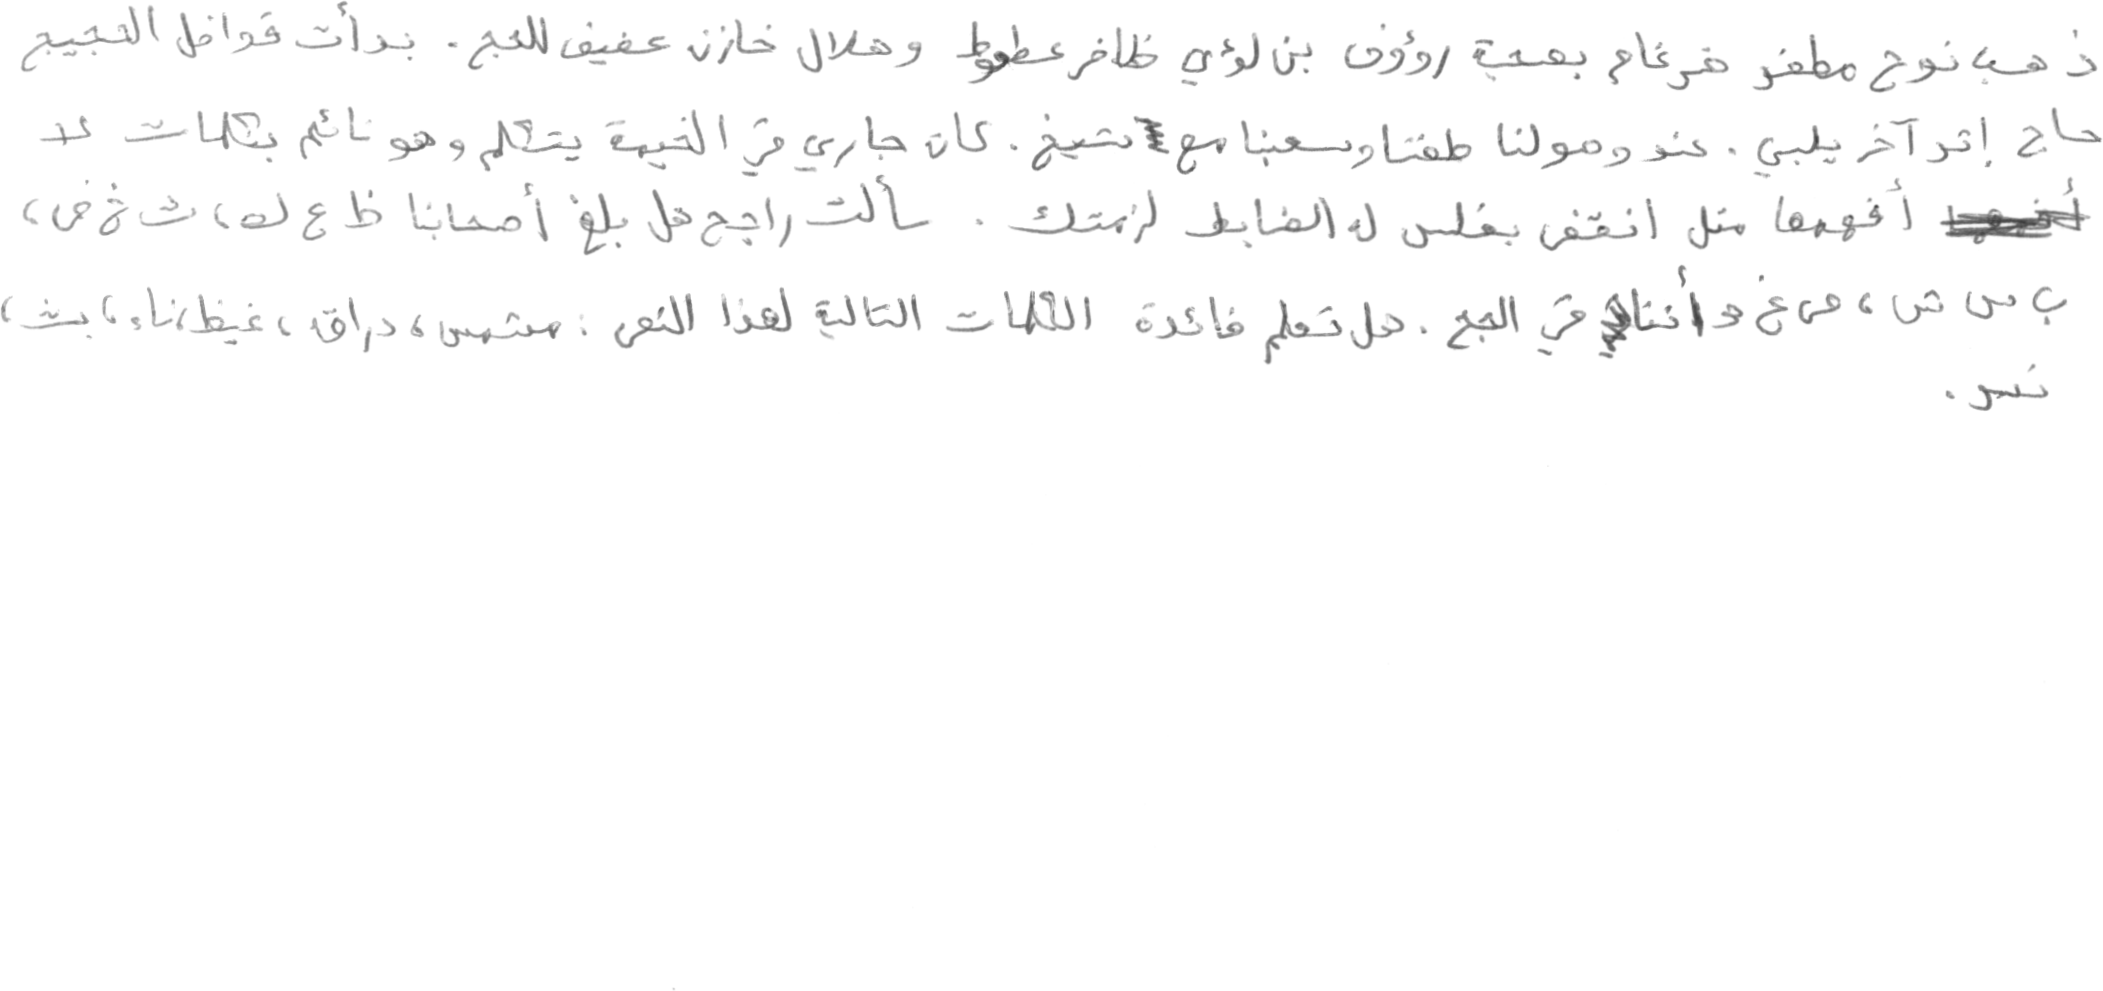 ذهب نوح مظفر ضرغام بصحبة رؤوف بن لؤي ظافر عطعوط وهلال خازن عفيف للحج. بدأت قوافل الحجيج
حاج إثر آخر يلبي. عند وصولنا طفنا وسعينا مع شيخ. كان جاري في الخيمة يتكلم وهو نائم بكلمات لا
أفهمها مثل انقض بغلس له الضابط لزمتك. سألت راجح هل بلغ أصحابنا ظ ع ك، ث خ ض،
ب س ش، ص غ و أنا في الحج. هل تعلم فائدة الكلمات التالية لهذا النص: مشمس، دراق، غيظ، ناء، بث،
نسر.